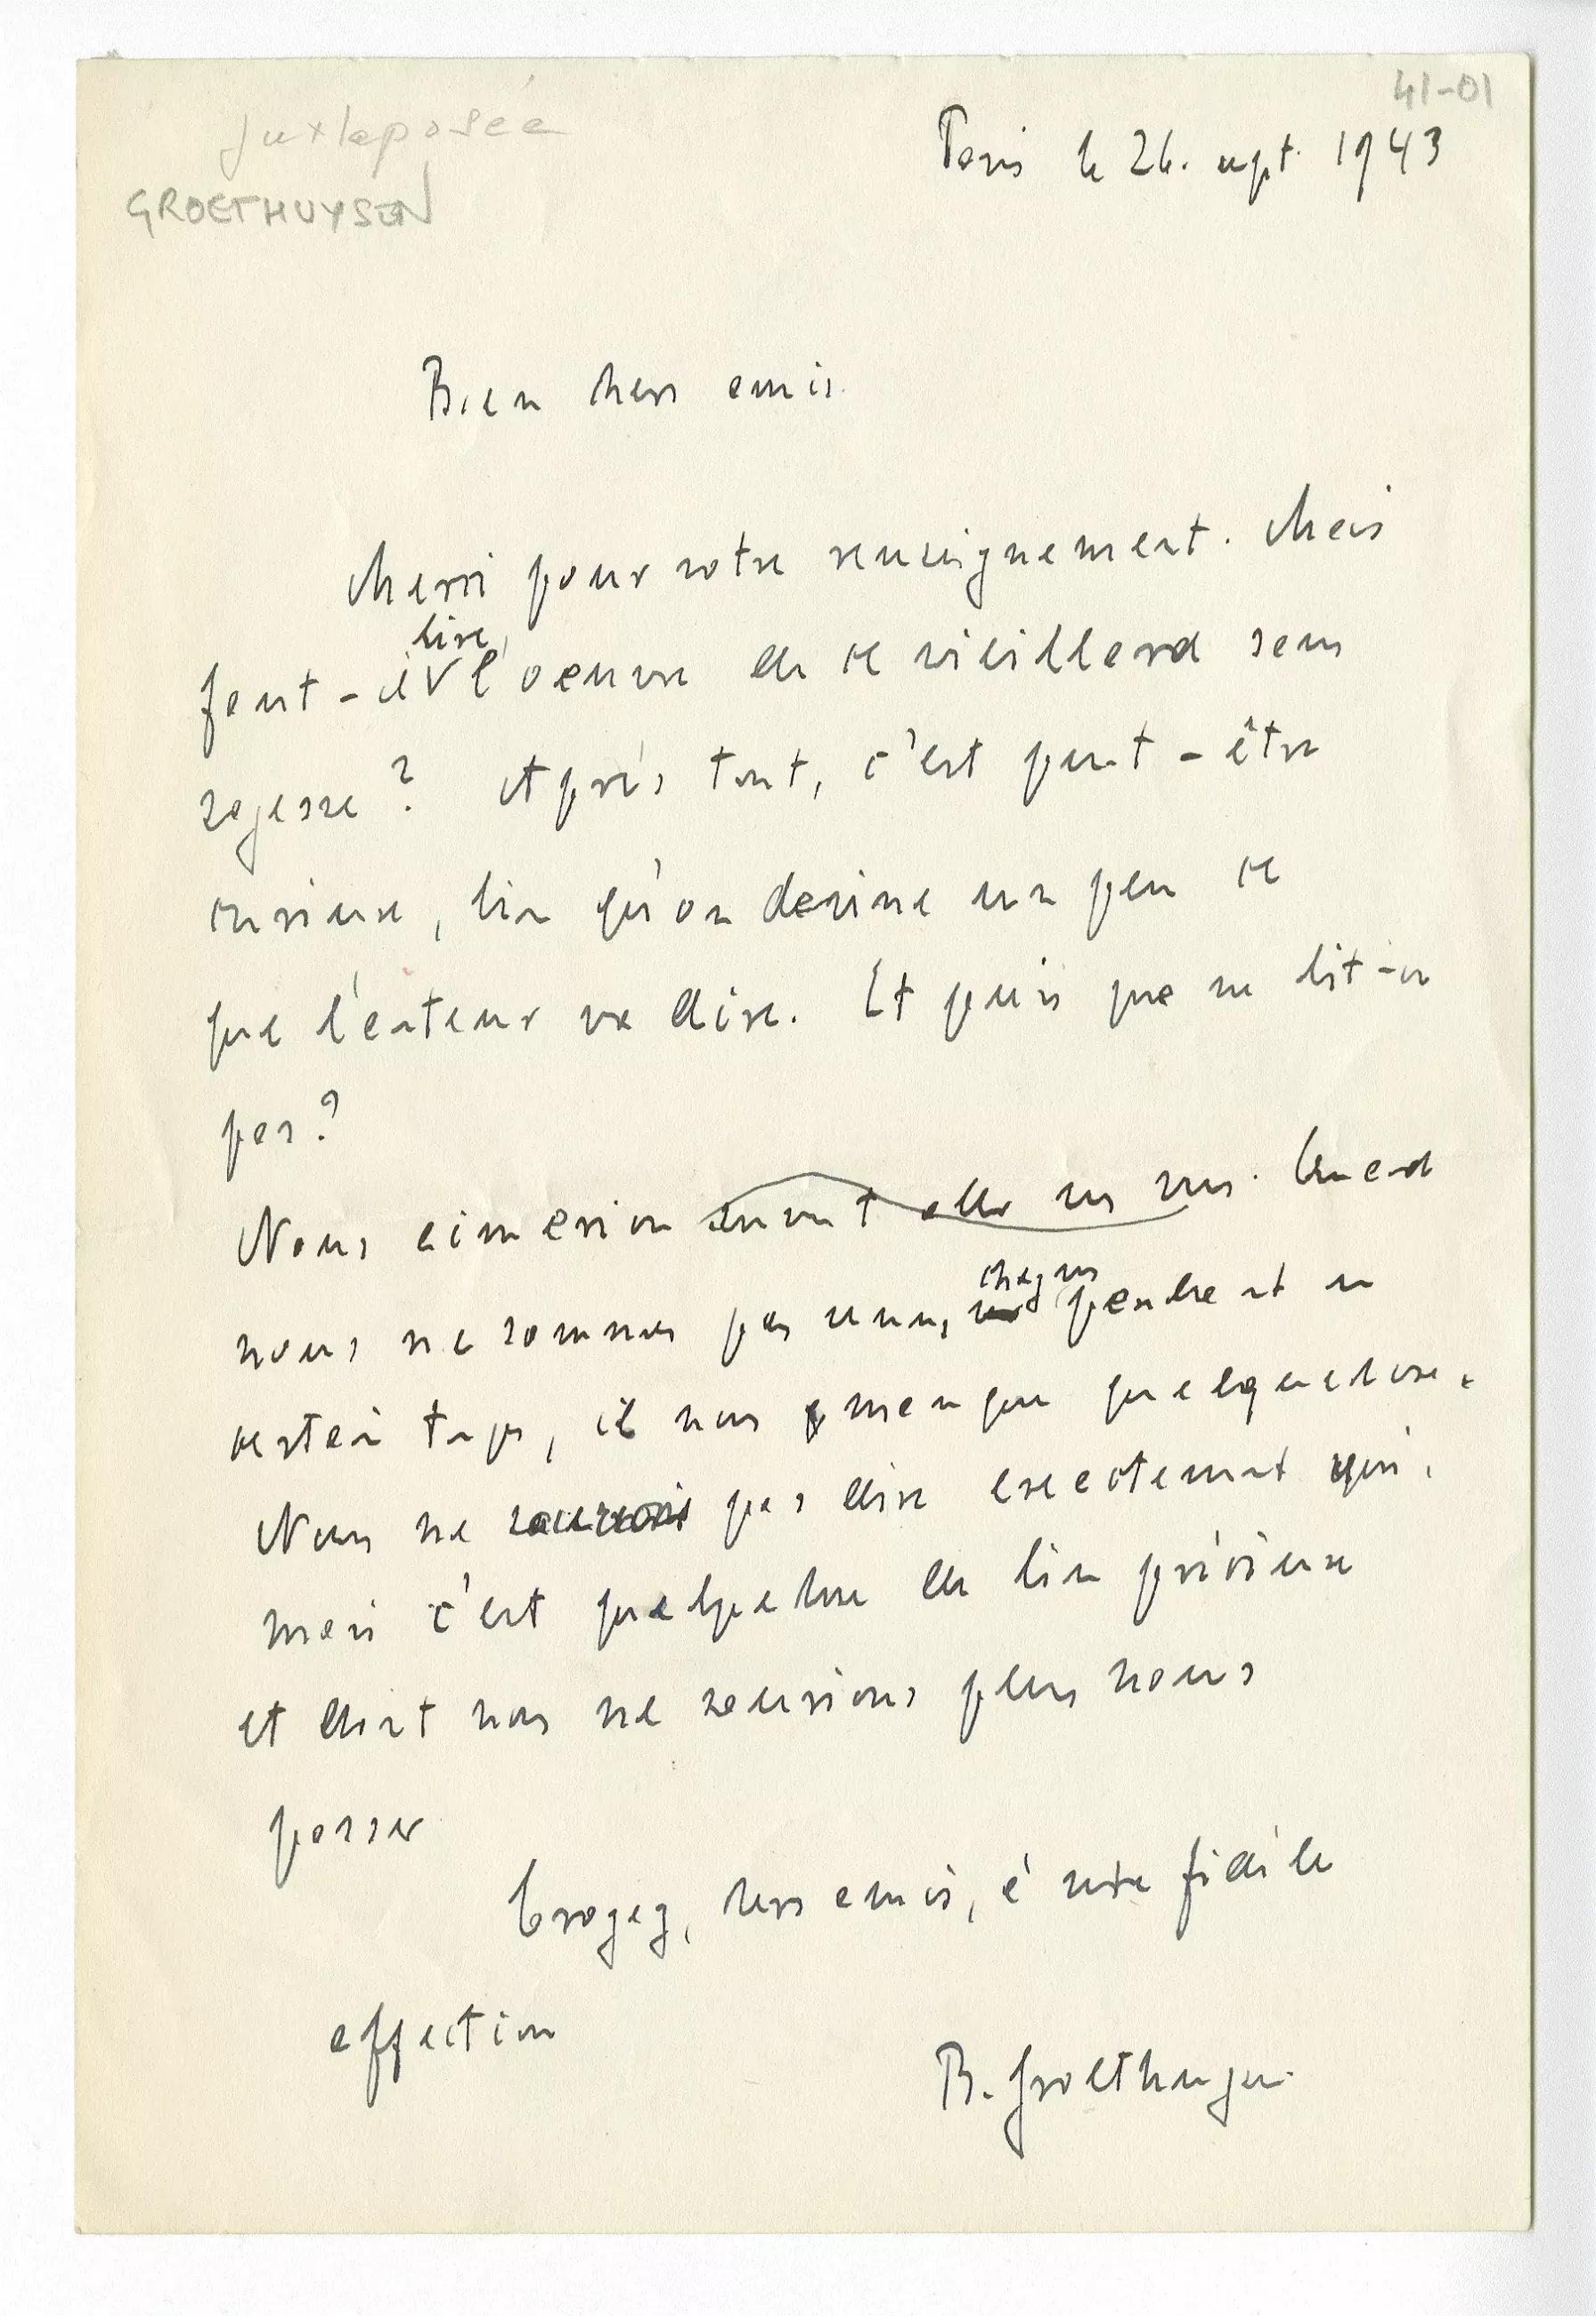 41-01
Juxtaposée
GROETHUYSEN
Paris le 26. sept. 1943
Bien chers amis.
Merci pour votre renseignement. Mais
faut-il lire l'oeuvre de ce vieillard sans
sagesse ? Après tout, c'est peut-être
curieux, bien qu'on devine un peu ce
que l'auteur va dire. Et puis que ne lit-on
pas ?
Nous aimerions souvent aller vers vous. Quand
nous ne sommes pas venus, chez vous pendant un
certain temps, il nous manque quelque chose.
Nous ne saurions pas dire exactement quoi,
mais c'est quelque chose de bien précieux
et dont nous ne saurions plus nous
passer
Croyez, chers amis, à notre fidèle
affection
B. Groethuysen